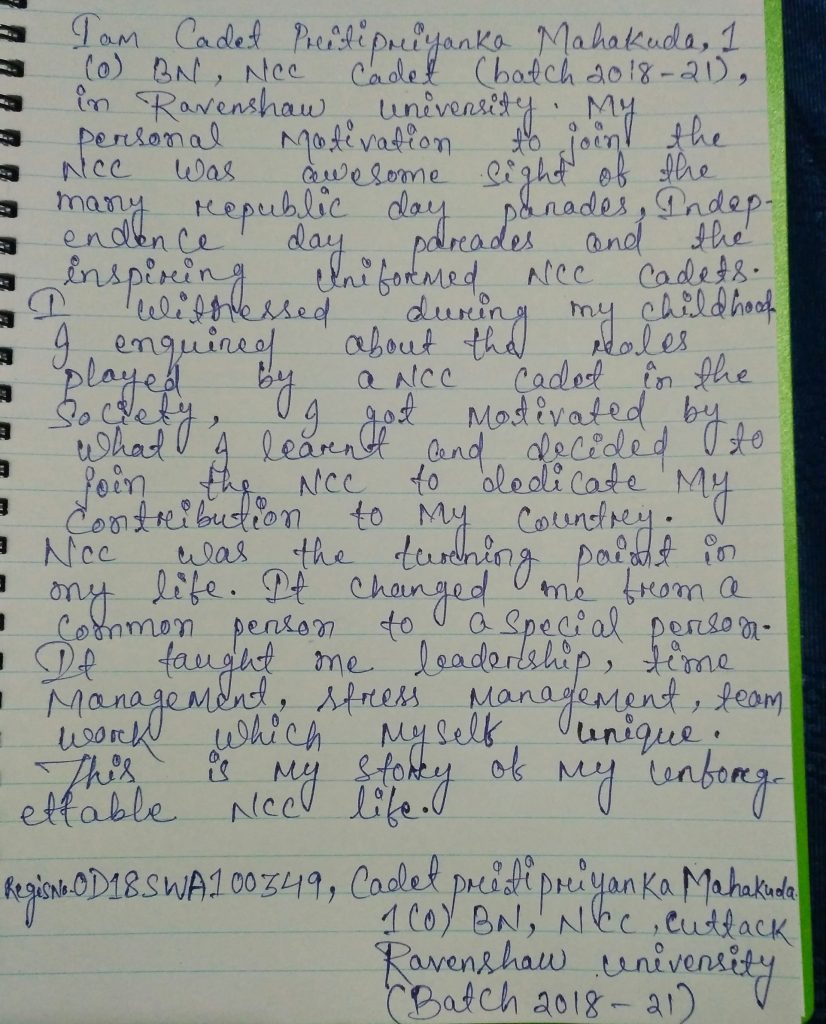 I am Cadet Pritipriyanka Mahakuda, 1
(O) BN, NCC Cadet (batch 2018-21),
in Ravenshaw university. My
personal Motivation to join the
NCC was awesome sight of the
many republic day parades, Indep-
endence day parades and the
inspiring uniformed NCC Cadets.
I witnessed during my childhood
I enquired about the roles
played by a NCC Cadet in the
Society, I got Motivated by
what I learnt and decided to
join the NCC to dedicate My
Contribution to My Country.
NCC was the turning point in
my life. It changed me from a
Common person to a Special person.
It taught me leadership, time
Management, stress Management, team
work which Myself unique.
This is My Story of My unforg-
ettable NCC life.
Regis No. OD18SWA100349, Cadet Pritipriyanka Mahakuda
1 (O) BN, NCC, Cuttack
Ravenshaw university
(Batch 2018-21)